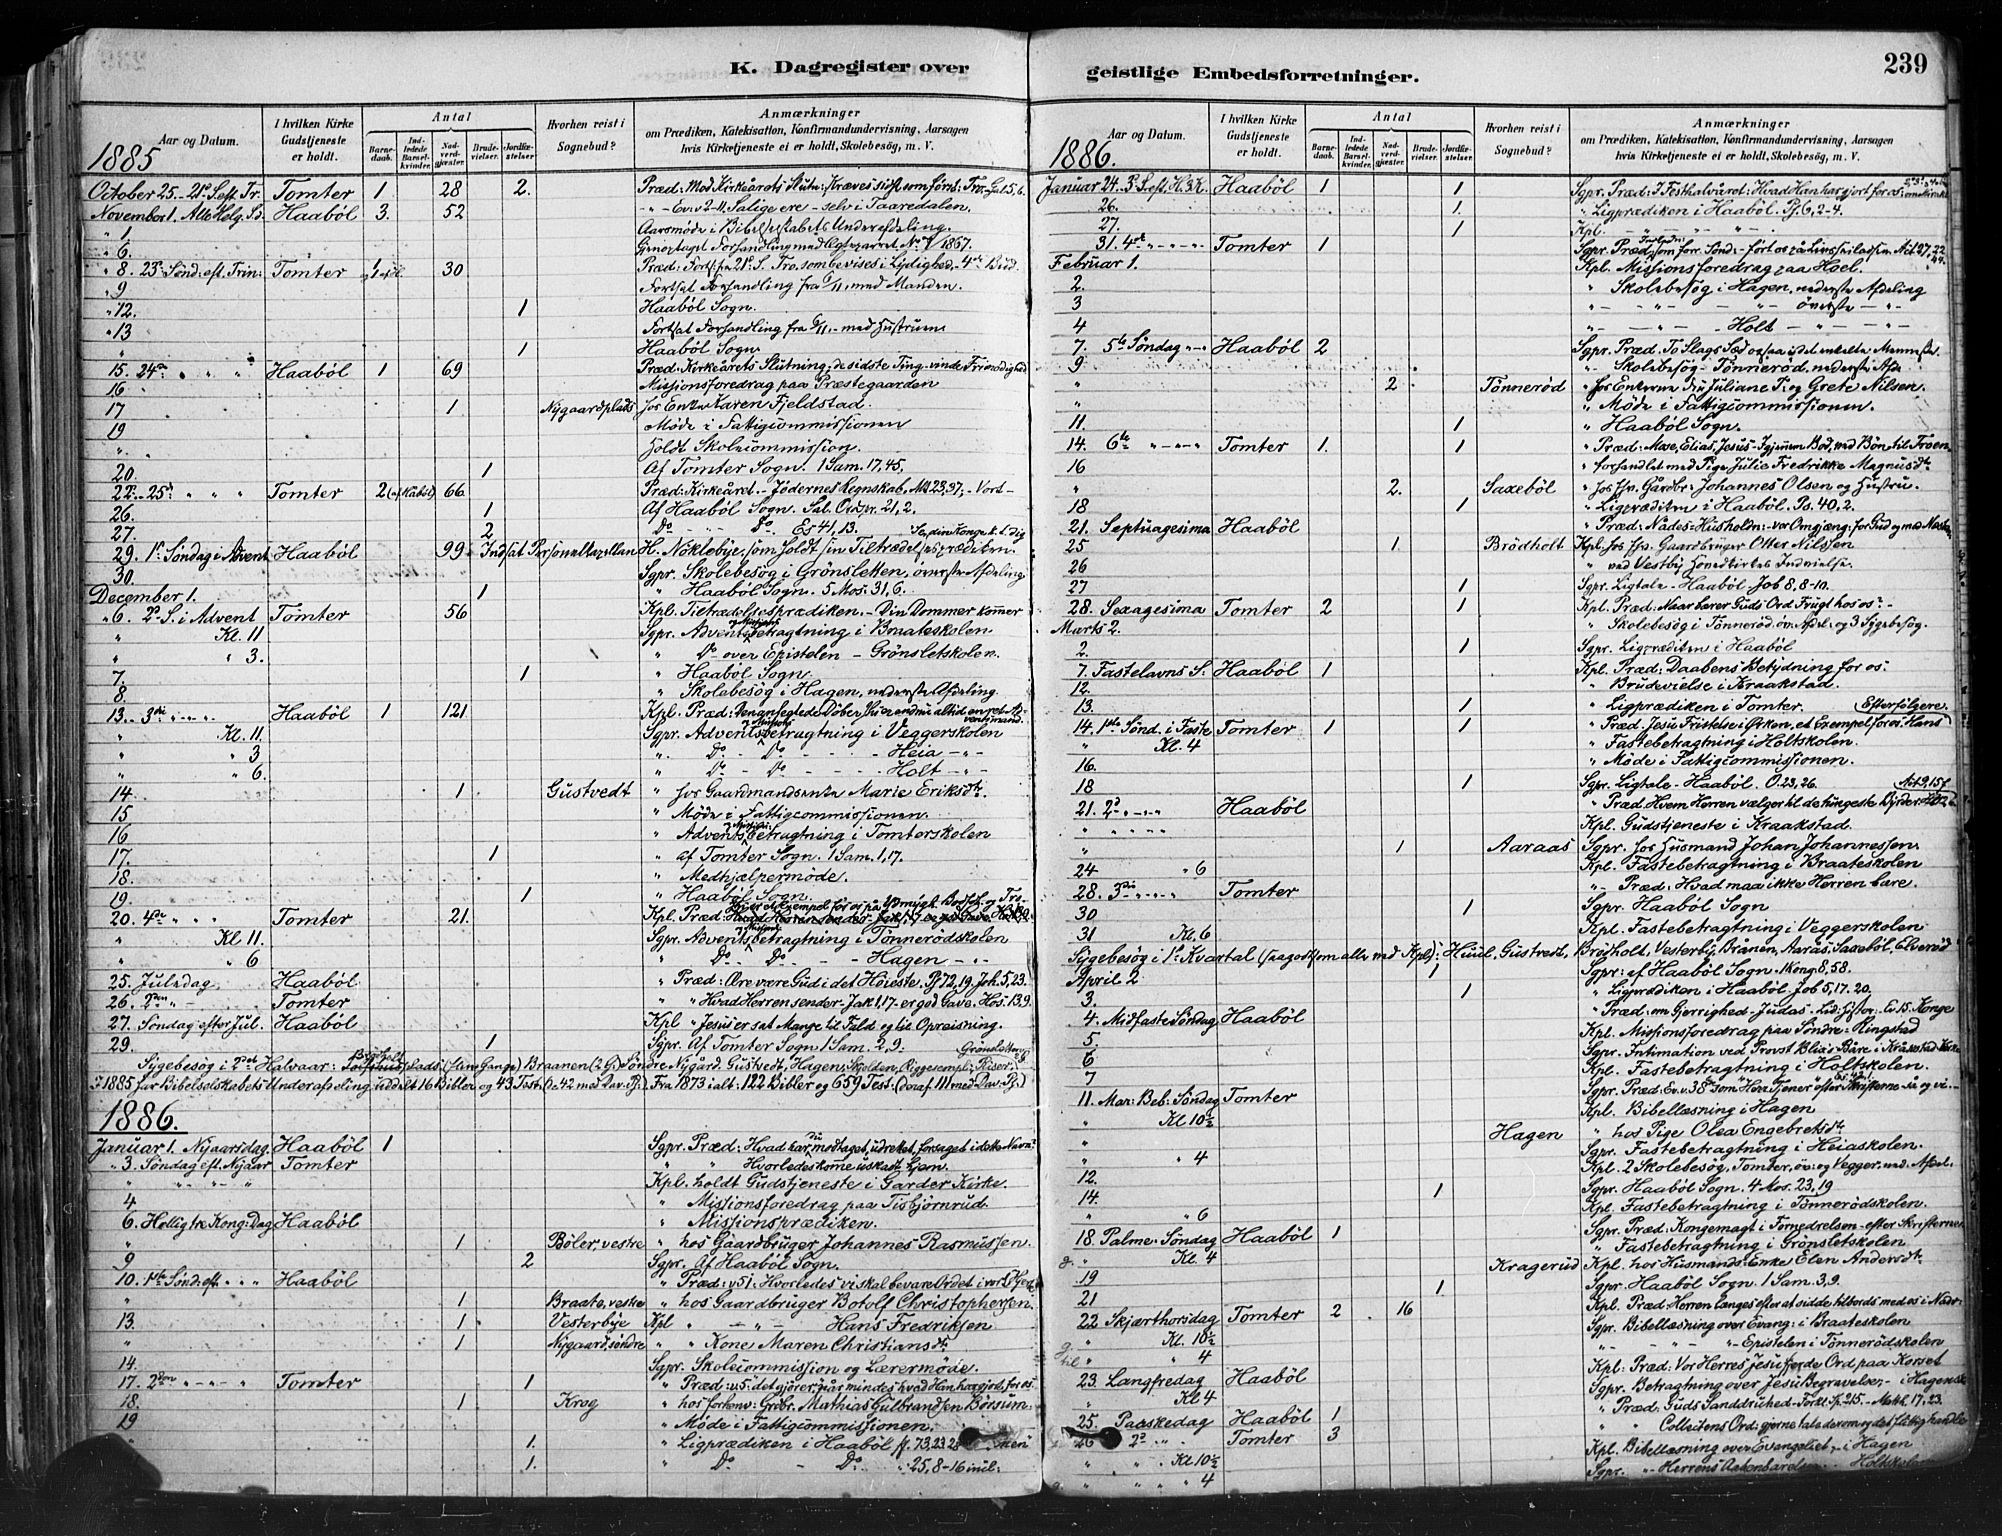 K. Dagregister over
Aar og Datum.
I hvilken Kirke Gudstjeneste er holdt.
Antal
Barnedaab.
Indledede Barselkvinder.
Nadverdgjæster.
Brudevielser.
Jordfæstelser.
Hvorhen reist i Sognebud?
Anmærkninger
om Prædiken, Katekisation, Konfirmandundervisning, Aarsagen
hvis Kirketjeneste ei er holdt, Skolebesøg, m. V.
1885
October 25. 21de S. eft. Tr. Tomter 1 28 2. Præd: Mod Kirkeårets Slute: Kræves sidst som først: Tro. Ga 15,6.
November 1. Alle Helg. D. Haaböl 3. 52 Ev. v 2-11. Salige ere - selv i Taaredalen.
" 1 Aarsmöde i Bibelselskabets Underafdeling.
6. Gjenoptaget Forhandling med 1867.
" 8. 23de Sönd: eft. Trin: Tomter 1 30 Præd: Forts: fra 21de S. Tro, som bevises i Lydighed - 4de Bud.
" 9 Fortsat Forhandling fra 6/11, med Manden.
" 12. 1 Haaböl Sogn.
" 13 Fortsat Forhandling fra 6/11 - med Hustruen
" 1 Haaböl Sogn.
15. 24de " " " Haaböl 1 69 Præd: Kirkeårets Slutning; de sidste Ting, vinde Frimodighed
16 Missionsforedrag paa Præstegaarden
17 1 Nygaardplads Hos Enke Karen Fjeldstad.
19 Möde i Fattigcommissionen
" " Holdt Skolecommission.
20. 1 Af Tomter Sogn. 1 Sam. 17,45.
22. 25de " " " Tomter 2 66 Præd: Kirkeåret. - Jödernes Regnskab, Mt 23,37; - Vort -
26. 1 Af Haaböl Sogn. Sal. Ordpr. 21,2.
27. 2 Do Do Es 41,13.
29. 1ste Söndag i Advent Haaböl 99 Indsat Personelkapellan H. Nöklebye, som holdt sin Tiltrædelsesprædiken.
30. Sgpr. Skolebesög i Grönsletten, överste Afdeling
December 1. 1 " Haaböl Sogn. 5. Mos. 31,6.
" 6. 2den S. i Advent Tomter 56 Kpl. Tiltrædelsesprædiken. - Din Dommer kommer
" Kl. 11 Sgpr. Adventsbetragtning i Braateskolen
" " 3. " Do over Epistelen - Grönsletskolen.
7. 1 " Haaböl Sogn.
8. " Skolebesög i Hagen, nederste Afdeling.
13. 3die " " " Haaböl 1 121 Kpl. Præd:
" Kl. 11 Sgpr. Adventsbetragtning i Veggerskolen
" " 3 " Do - Do - - - Heia - " -
" " 6. " Do - Do - - - Holt - " -
14. 1 Gustvedt " hos Gaardmandsenke Marie Eriksdtr.
15 " Möde i Fattigcommissionen.
16 " Adventsbetragtning i Tomterskolen
17. 1 " af Tomter Sogn. 1 Sam. 1,17.
18. " Medhjælpermöde.
19. 1 " Haaböl Sogn.
20. 4de " " " Tomter 21. Kpl. Præd:
" Kl 11. Sgpr. Adventsbetragtning i Tönnerödskolen
" " 6 " Do - Do - - - Hagen - " -
25. Juledag Haaböl " Præd: Ære være Gud i det Höieste. Ps 72,19. Joh. 5,23.
26. 2den " - Tomter " " Hvad Herren sender - Jak 1,17. er god Gave. Hos. 13,9.
27. Söndag efter Jul. Haaböl Kpl " Jesus er sat Mange til Fald og til Opreisning.
29. 1 Sgpr. Af Tomter Sogn. 1 Sam. 2,9.
Sygebesög i 2det Halvaar: (flere Gange) Braanen (2 G.) Söndre Nygård. Gustvedt, Hagen, Skolden, Riser.
I 1885 fur Bibelselskabets Underafdeling uddelt 16 Bibler og 43 Test. (de 42 med Dav. Ps.) Fra 1873 i alt: 122 Bibler og 659 Test. (hvoraf 111 med Dav. Ps.)
1886.
Januar 1. Nyaarsdag Haaböl 1 Sgpr. Præd: Hvad har du modtaget, udrettet, forsaget i dette Navn?
" 3. Söndag eft. Nyaar Tomter " " Hvorledes komme uskadt hjem.
" " " " " Kpl. holdt Gudstjeneste i Garder Kirke.
4 " Missionsforedrag paa Tisbjörnrud.
6. Hellig tre Kong: Dag Haaböl " Missionsprædiken.
" 1 Böler, vestre " hos Gaardbruger Johannes Rasmussen.
9 2 Sgpr. Af Haaböl Sogn.
10. 1ste Sönd: eft. " " " Haaböl " Præd: v 51. Hvorledes vi skal bevare Ordet i vort
" 1 Braate, vestre " hos Gaardbruger Botolf Christophersen.
13. 1 Vesterbye Kpl " - " - Hans Fredriksen
" 1 Nygaard, söndre " " Kone Maren Christiansdtr.
14. Sgpr. Skolecommission og Lærermöde.
17. 2den " - " - " Tomter 1 " Præd: v 5: det gjörer, når mindes hvad Han har gjort for os -
18. 1 Krog " hos forhenv: Grdbr. Mathias Gulbrandsen Börsum.
19 " Möde i Fattigcommissionen.
" 1. " Ligprædiken i Haaböl Ps. 73,23.25
1. " Do Do " 25,8-16 incl:
239
geistlige Embedsforretninger.
Aar og Datum.
I hvilken Kirke Gudstjeneste er holdt.
Antal
Barnedaab.
Indledede Barselkvinder.
Nadverdgjæster.
Brudevielser.
Jordfæstelser.
Hvorhen reist i Sognebud?
Anmærkninger
om Prædiken, Katekisation, Konfirmandundervisning, Aarsagen
hvis Kirketjeneste ei er holdt, Skolebesøg, m. V.
1886.
Januar 24. 3die S. eft. H. 3 K. Haaböl 1 1 Sgpr. Præd: I. Festhalvåret: Hvad Han har gjort for os:
26. 1. " Ligprædiken i Haaböl. Ps. 6, 2-4.
27. 1 Kpl. - " - " - " -
31. 4de " " " " Tomter 1 Sgpr. Præd: som forr. Sönd: - fört os på Livsseiladsen Act 27,22.24.
Februar 1. Kpl. Missionsforedrag paa Hoel.
2. " Skolebesög i Hagen, nederste Afdeling
3 " - " - " - överste - " -
4 " - " - " - Holt - " - " -
7. 5te Söndag " " Haaböl 2 Sgpr. Præd. To Slags Sæd også i det enkelte Menneske.
9 " Skolebesög - Tönneröd, nederste Afd.
" 2 Tönneröd " hos Enkerne Juliane P. og Grete Nilsen.
" " Möde i Fattigcommissionen.
11. 1 " Haaböl Sogn.
14. 6te " " " Tomter 1. 1 " Præd: Mose, Elias, Jesus - Igjennem Bod, ved Bön til Troen.
16 " forhandlet med Pige Julie Fredrikke Magnusdtr.
" 2. Saxeböl " hos fhv. Gårdbr: Johannes Olsen og Hustru.
18 1 " Ligprædiken i Haaböl. Ps. 40,2.
21. Septuagesima Haaböl " Præd: Nådes-Husholdn: - vor Omgjæng: for Gud og med Næsten
25 1 Brödholt Kpl. hos fhv. Gaardbruger Otter Nilssen
26 " ved Vestby Hovedkirkes Indvielse.
27 1 Sgpr. Ligtale - Haaböl Job 8, 8-10.
28. Sexagesima Tomter 2 1 Kpl. Præd: Naar bærer Guds Ord Frugt hos os? -
Marts 2. " Skolebesög i Tönneröd, öv. Afdel. og 3 Sygebesög.
2. 1 Sgpr. Ligprædiken i Haaböl
7. Fastelavns S. Haaböl 1 Kpl. Præd: Daabens Betydning for os:
12. " Brudevielse i Kraakstad.
13. 1 " Ligprædiken i Tomter. (Efterfölgere.
14. 1ste Sönd. i Faste Tomter 1 1 " Præd. Jesu Fristelse i Örken, et Exempel for os, Hans
" Kl. 4 " Fastebetragtning i Holtskolen.
16. " Möde i Fattigcommissionen.
18 1 Sgpr. Ligtale - Haaböl. O. 23,26.
21. 2den " " " Haaböl " Præd. Hvem Herren vælger til de tungeste Byrder.
" " " " Kpl. Gudstjeneste i Kraakstad.
" 1 Aaraas Sgpr. hos Husmand Johan Johannessen.
24 " 6 Kpl. Fastebetragtning i Braateskolen
28. 3die " " " Tomter " Præd: Hvad maa ikke Herren bære.
30 1 Sgpr. Haaböl Sogn
31 Kl. 6 Kpl. Fastebetragtning i Veggerskolen
Sygebesög i 1ste Kvartal (saagodtsom alle med Kpl): Huul, Gustvedt, Bröholt, Vesterby, Brånen, Aarås, Saxeböl, Elveröd
April 2 1 Sgpr: af Haaböl Sogn. 1 Kong. 8,58.
3. 1 " Ligprædiken i Haaböl Job 5,17.20.
4. Midfaste Söndag Haaböl " Præd: om Gjerrighed - Judas - Lid: Histor: Es 15. Konge
5. Kpl. Missionsforedrag paa Söndre-Ringstad
6 Sgpr. Intimation ved Provst Blix's Båre i Kråkstad Kirke
7 Kpl. Fastebetragtning i Holtskolen.
11. Mar: Beb: Söndag Tomter Sgpr. Præd: Ev. v 38 "som Herr: Tjener" efter Skrifterne - Ja og vi -
" Kl 10½ Kpl. Bibellæsning i Hagen
" Hagen " hos Pige Olea Engebretsdtr
" " 4 Sgpr. Fastebetragtning i Heiaskolen.
12. Kpl. 2 Skolebesög, Tomter, öv: og Vegger, ned. Afdel.
14. 1 Sgpr. Haaböl Sogn. 4 Mos. 23,19
" " 6 Kpl. Fastebetragtning i Tönnerödskolen.
18. Palme-Söndag Haaböl 1 Sgpr. Præd. Kongemagt i Fornedrelsen - efter Skrifterne
" Kl. 4 " Fastebetragtning i Grönsletskolen
19 Kragerud Kpl. hos Husmands-Enke Elen Andersdtr
21 1 Sgpr. Haaböl Sogn. 1 Sam. 3,9.
22 Skjærthorsdag Tomter 2 16 Kpl. Præd: Herren længes efter at sidde tilbords med os i Nadv:
" Kl. 10½ Sgpr. Bibellæsning over Evang: i Braateskolen
" " 4 - " - " - " - Epistelen i Tönnerödskolen
23. Langfredag Haaböl Kpl: Præd: Vor Herres Jesu fjerde Ord paa Korset
" Kl 4 Sgpr. Betragtning over Jesu Begravelse, - i Hagensk
25. Paaskedag Haaböl 1 " Præd: Guds Sanddruhed
26 2den " " Tomter 3 " " Collectens Ord:
" Kl 10½ Kpl. Bibellæsning over Evangeliet, - i Hagen
" " 4 Sgpr. " - Herrens Aabenbarelse